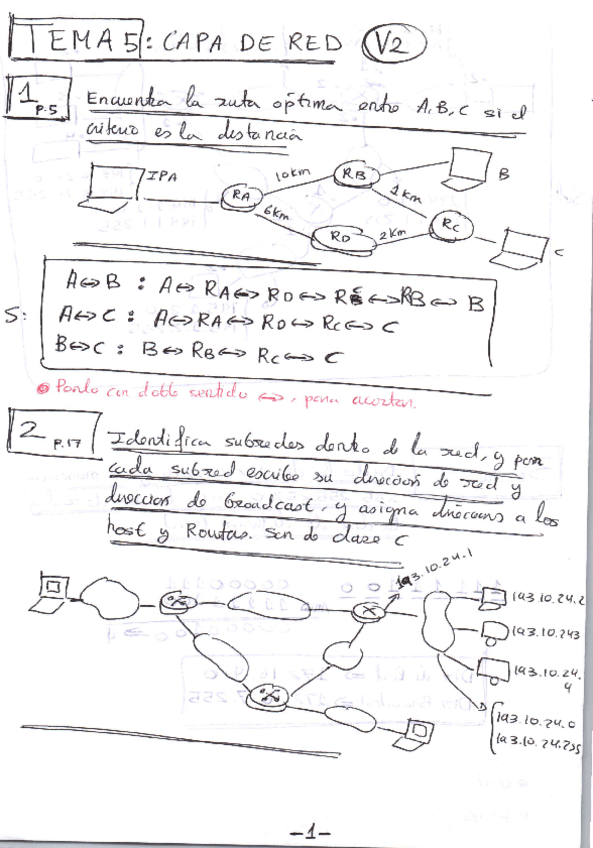 TEMA 5: CAPA DE RED V2
1 P.5 Encuentra la ruta óptima entre A, B, C si el
criterio es la distancia
IPA
RA
10km
RB
B
6km
1km
RD
2km
RC
C
S:
A↔B : A↔RA↔RD↔RC↔RB↔B
A↔C : A↔RA↔RD↔RC↔C
B↔C : B↔RB↔RC↔C
Ponlo con doble sentido ↔, para acortar.
2 P.17 Identifica subredes dentro de la red, y para
cada subred escribe su direccion de red y
direccion de broadcast, y asigna direcciones a los
host y Routers. Son de clase C
193.10.24.1
193.10.24.2
193.10.243
193.10.24.4
193.10.24.0
193.10.24.255
-1-